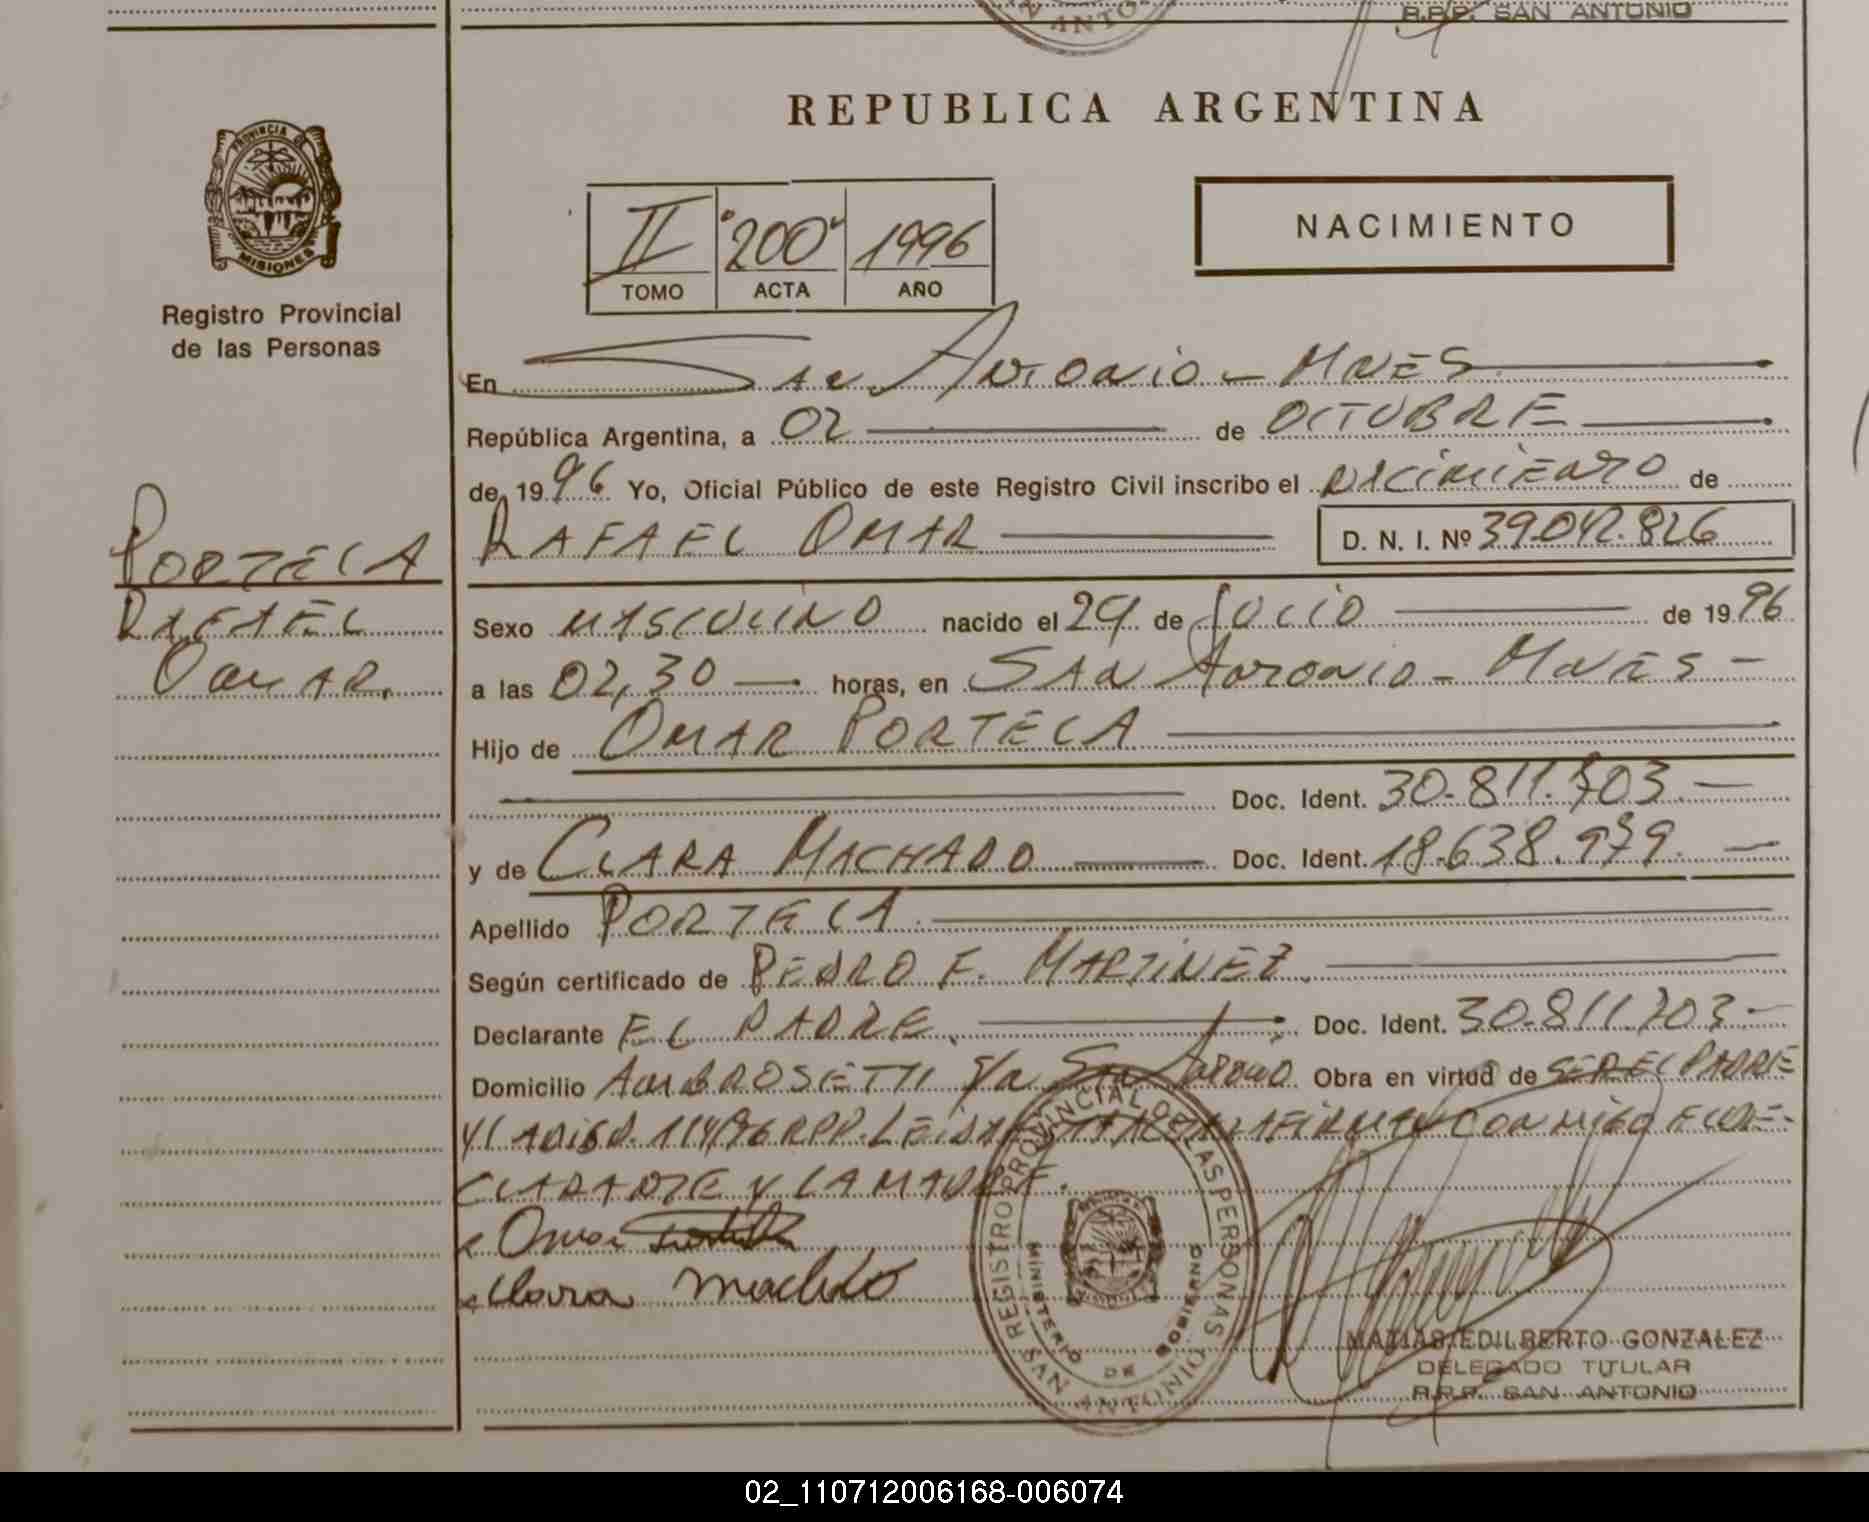 R.P.P. SAN ANTONIO
REPUBLICA ARGENTINA
PROVINCIA DE MISIONES
Registro Provincial
de las Personas
II "200" 1996
TOMO ACTA AÑO
NACIMIENTO
En San Antonio - Mnes
República Argentina, a 02 de OCTUBRE
de 1996 Yo, Oficial Público de este Registro Civil inscribo el NACIMIENTO de
RAFAEL OMAR D. N. I. Nº 39.042.826
PORTELA
RAFAEL
OMAR.
Sexo MASCULINO nacido el 29 de JULIO de 1996
a las 02,30 horas, en SAN ANTONIO - MNES -
Hijo de OMAR PORTELA
Doc. Ident. 30.811.703.-
y de CLARA MACHADO Doc. Ident. 18.638.979.-
Apellido PORTELA.
Según certificado de PEDRO F. MARTINEZ.
Declarante EL PADRE. Doc. Ident. 30.811.703.-
Domicilio AMBROSETTI S/N San Antonio Obra en virtud de SER EL PADRE
Y LA DISP. 114/96 RPP. LEIDA EL ACTA LA FIRMAN CONMIGO EL DE-
CLARANTE Y LA MADRE.
x Omar Portela
x Clara Machado
REGISTRO PROVINCIAL DE LAS PERSONAS
MINISTERIO DE GOBIERNO
SAN ANTONIO
MATIAS EDILBERTO GONZALEZ
DELEGADO TITULAR
R.P.P. SAN ANTONIO
02_110712006168-006074